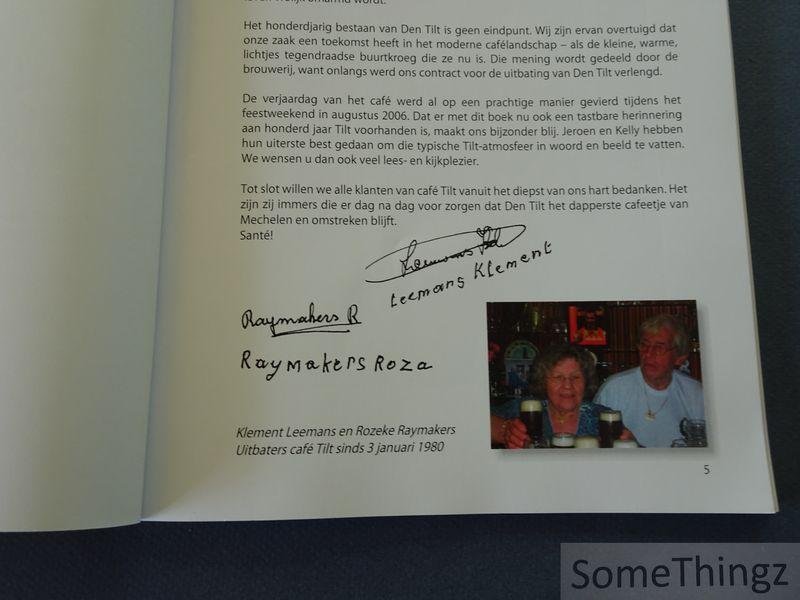 Het honderdjarig bestaan van Den Tilt is geen eindpunt. Wij zijn ervan overtuigd dat
onze zaak een toekomst heeft in het moderne cafélandschap – als de kleine, warme,
lichtjes tegendraadse buurtkroeg die ze nu is. Die mening wordt gedeeld door de
brouwerij, want onlangs werd ons contract voor de uitbating van Den Tilt verlengd.
De verjaardag van het café werd al op een prachtige manier gevierd tijdens het
feestweekend in augustus 2006. Dat er met dit boek nu ook een tastbare herinnering
aan honderd jaar Tilt voorhanden is, maakt ons bijzonder blij. Jeroen en Kelly hebben
hun uiterste best gedaan om die typische Tilt-atmosfeer in woord en beeld te vatten.
We wensen u dan ook veel lees- en kijkplezier.
Tot slot willen we alle klanten van café Tilt vanuit het diepst van ons hart bedanken. Het
zijn zij immers die er dag na dag voor zorgen dat Den Tilt het dapperste cafeetje van
Mechelen en omstreken blijft.
Santé!
Leemans Klement
Raymakers R
Raymakers Roza
Klement Leemans en Rozeke Raymakers
Uitbaters café Tilt sinds 3 januari 1980
5
SomeThingz